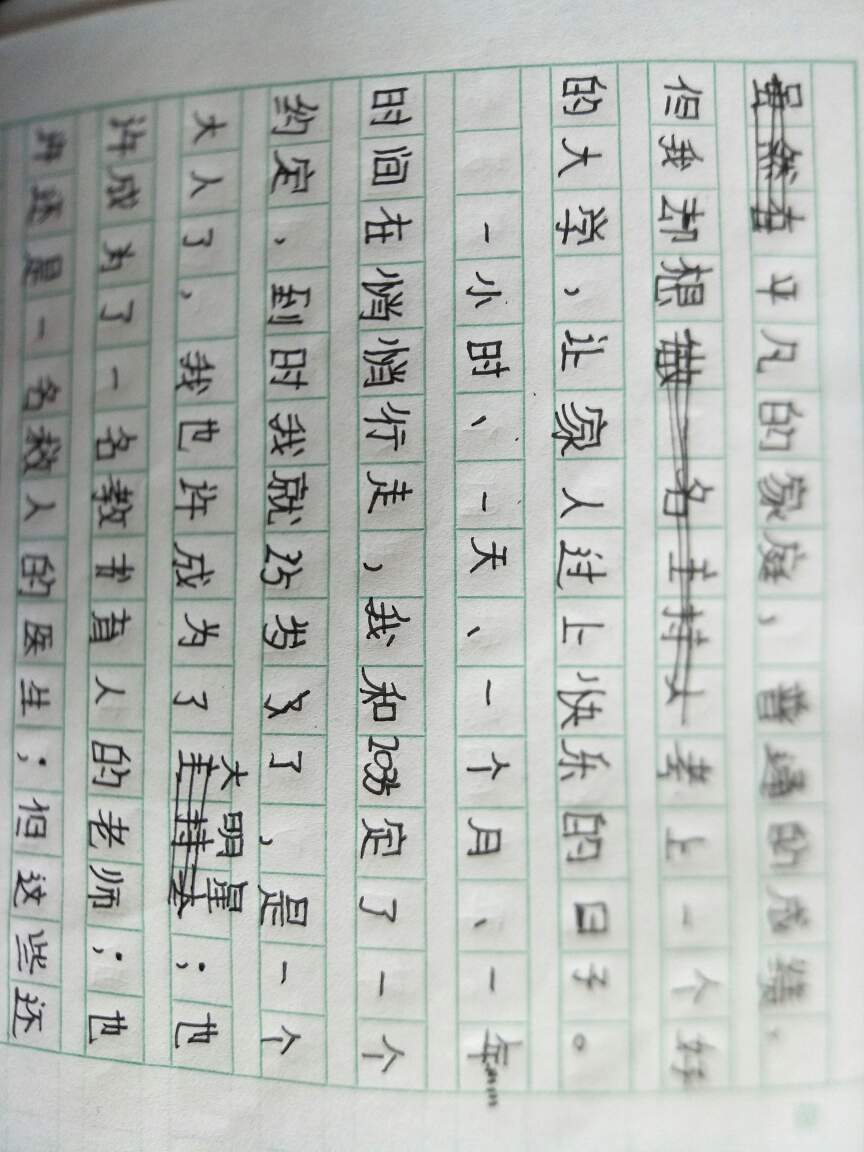 平凡的家庭，普通的成绩，
但我却想考上一个好
的大学，让家人过上快乐的日子。
一小时、一天、一个月、一年……
时间在悄悄行走，我和2035定了一个
约定，到时我就25岁了，是一个
大人了，我也许成为了大明星；也
许成为了一名教书育人的老师；也
许还是一名救人的医生；但这些还